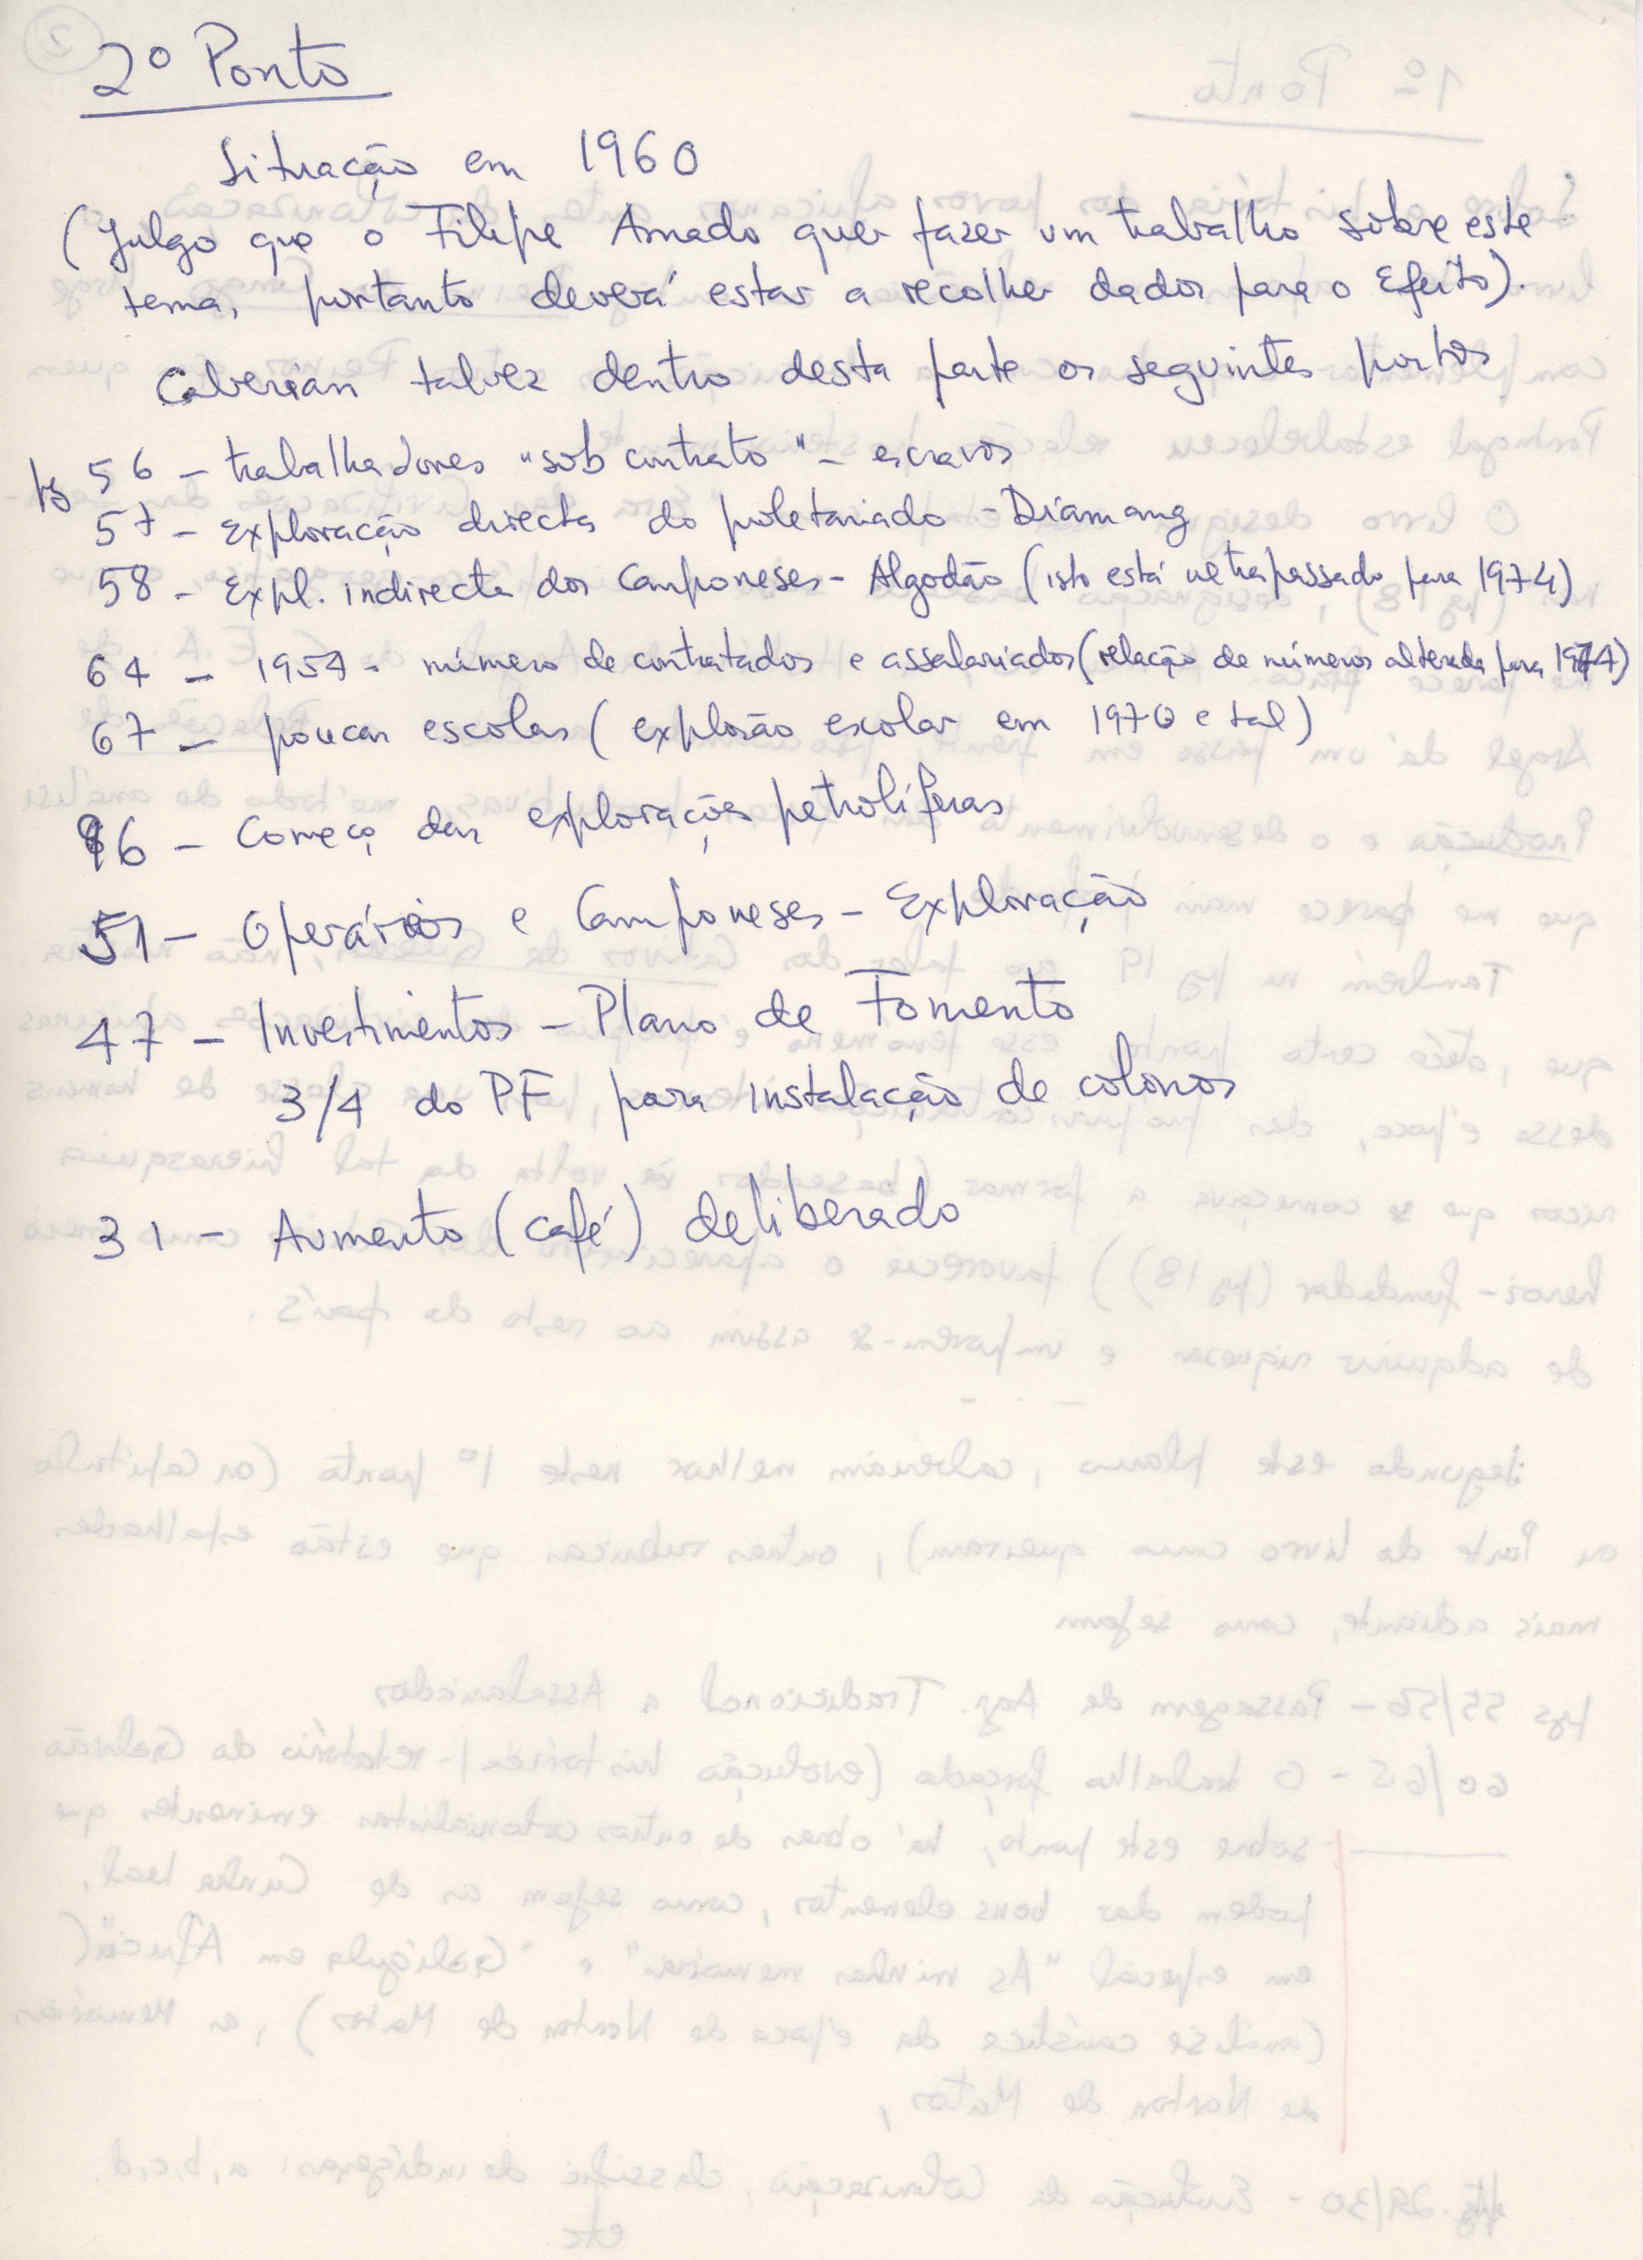 2
2º Ponto
Situação em 1960
(Julgo que o Filipe Amado quer fazer um trabalho sobre este
tema, portanto deverá estar a recolher dados para o efeito).
Caberiam talvez dentro desta parte os seguintes pontos
pg 56 - trabalhadores "sob contrato" - escravos
57 - Exploração directa do proletariado - Diamang
58 - Expl. indirecta dos Camponeses - Algodão (isto está ultrapassado para 1974)
64 - 1954 - número de contratados e assalariados (relação de números alterada para 1974)
67 - poucas escolas (explosão escolar em 1970 e tal)
96 - Começo das explorações petrolíferas
51 - Operários e Camponeses - Exploração
47 - Investimentos - Plano de Fomento
3/4 do PF para instalação de colonos
31 - Aumento (café) deliberado